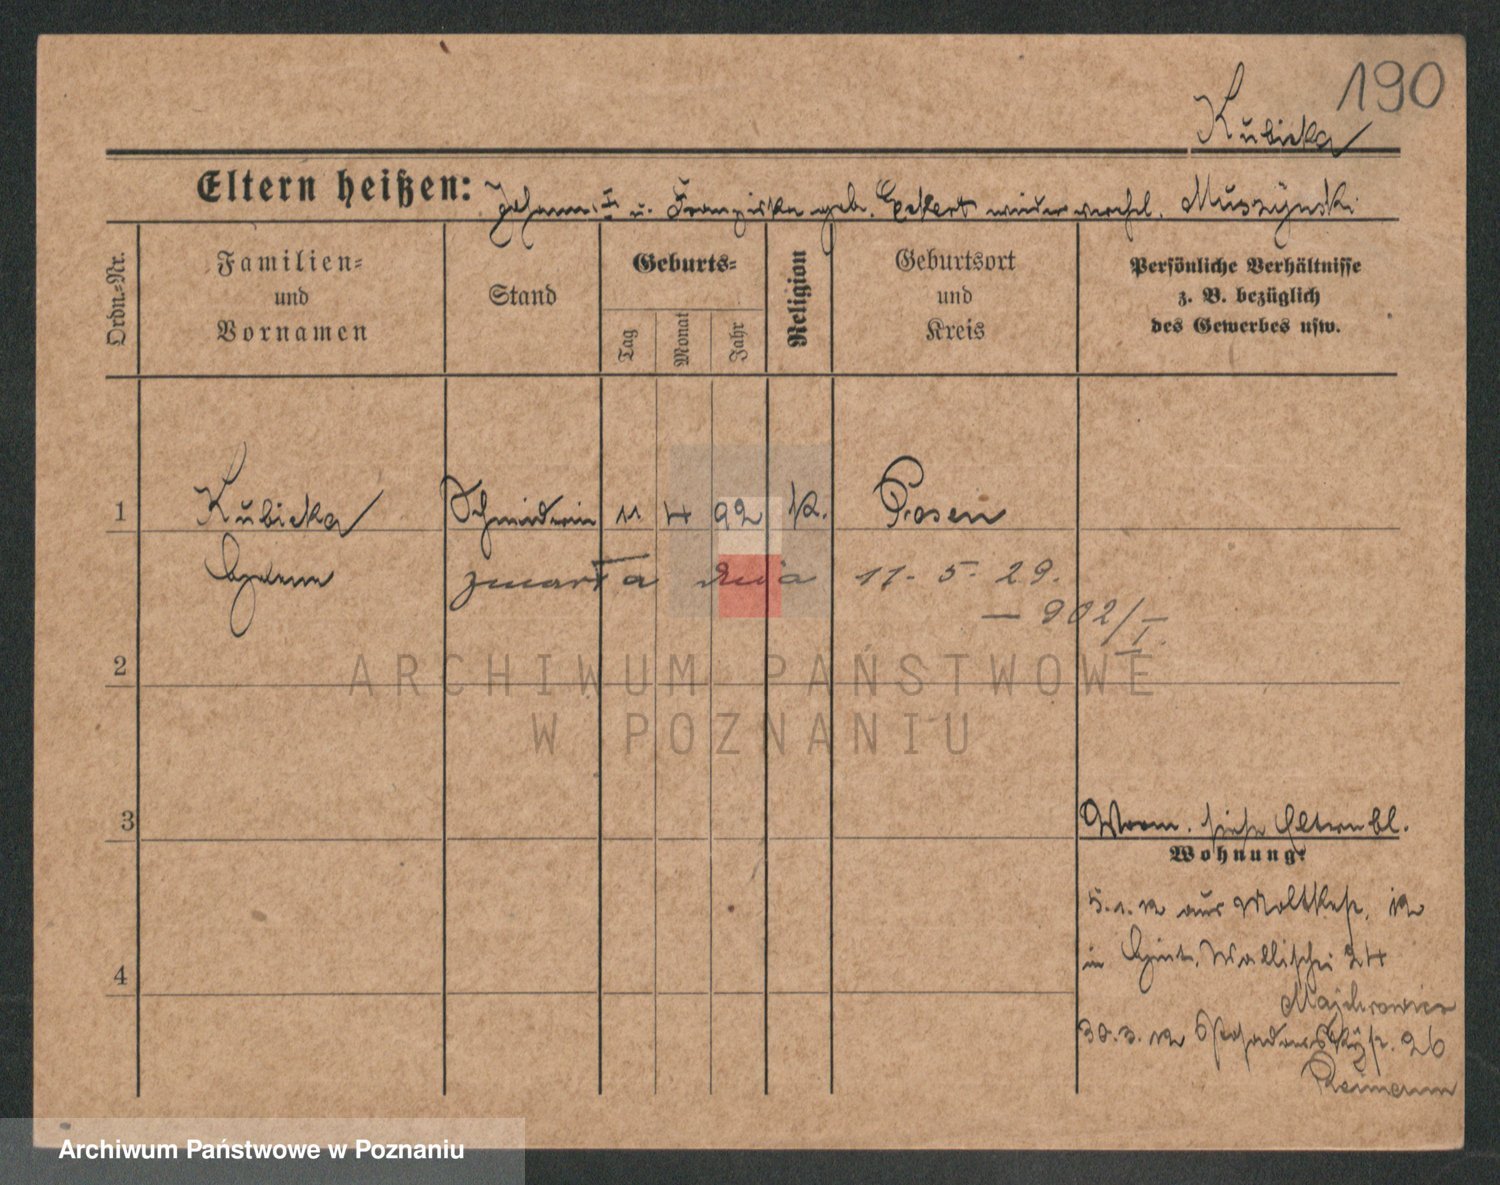 190
Kubicka
Eltern heißen: Johann I u. Franziska geb. Eckert wiederverehel. Muszynski
Ordn.-Nr.
Familien-
und
Vornamen
Stand
Geburts-
Tag
Monat
Jahr
Religion
Geburtsort
und
Kreis
Persönliche Verhältnisse
z. B. bezüglich
des Gewerbes usw.
1 Kubicka Schneiderin 11 4 92 k. Posen
Helene
zmarła dnia 11. 5. 29.
— 902/I.
2
3
Worm. siehe Elternbl.
Wohnung:
5.1.12 aus Moltkestr. 12
in Hint. Wallischei 24
Majchrowicz
4
30.3.12 26
ARCHIWUM PAŃSTWOWE
W POZNANIU
Archiwum Państwowe w Poznaniu